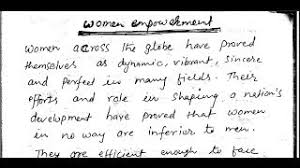 Women empowerment
Women across the globe have proved
themselves as dynamic, vibrant, sincere
and perfect in many fields. Their
efforts and role in shaping a nation's
development have proved that women
in no way are inferior to men.
They are efficient enough to face